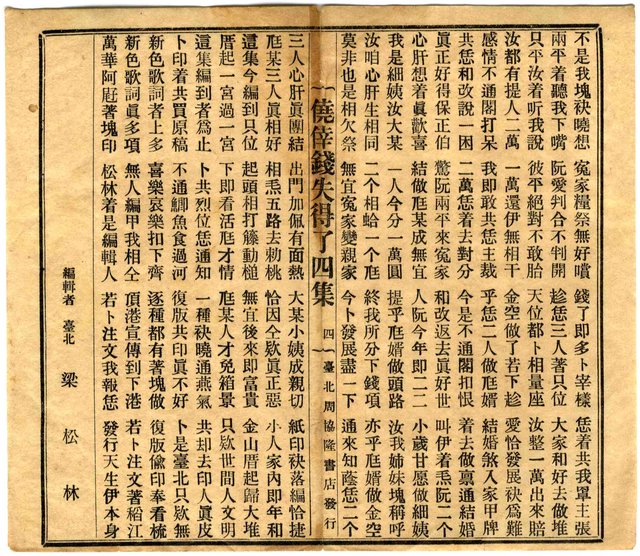 不是我塊袂曉想 冤家糧祭無好嚐 錢了即多卜宰樣 恁着共我罩主張
兩平着聽我下嘴 阮愛判合不判開 趁恁三人著只位 大家和好去做堆
只平汝着听我說 彼平絕對不敢胎 天位都卜相量座 汝整一萬出來賠
汝都有提人二萬 一萬還伊無相干 金空做了若下趁 愛恰發展袂為難
感情不通閣打呆 我即敢共恁主裁 乎恁二人做尫婿 結婚煞入家甲牌
共恁和改說一困 二萬恁着去對分 今是不通閣扣恨 着去做禀通結婚
眞正好得保正伯 驚阮兩平來冤家 和改返去眞好世 叫伊着㤆阮二个
心肝想着眞歡喜 結做尫某成無宜 人阮今年即二二 小歲甘愿做細姨
我是細姨汝大某 一人今分一萬圓 提乎尫婿做頭路 汝我姉妹塊稱呼
汝咱心肝生相同 二个相蛤一个尫 終我所分下錢項 亦乎尫婿做金空
莫非也是相欠祭 無宜冤家變親家 今卜發展盡一下 通來知蔭恁二个
僥倖錢失得了四集 四 臺北周協隆書店發行
三人心肝眞團結 出門加佩有面熱 大某小姨成親切 紙印袂落編恰捷
尫某三人眞相好 相㤆五路去勅桃 恰因仝欵眞正惡 小人家內即年和
這集今編到只位 起頭相打籐動槌 無宜後來即富貴 金山厝起歸大堆
厝起一宮過一宮 下即看活尫才情 尫某三人才免箱景 只欵世間人文明
這集編到者為止 卜共烈位恁通知 一種袂曉通燕氣 共却去印人眞皮
卜印着共買原稿 不通鯽魚食過河 復版共印眞不好 卜是臺北只欵無
新色歌詞者上多 喜樂哀樂扣下齊 逐種都有著塊做 復版偸印奉看梳
新色歌詞眞多項 無人編甲我相仝 頂港宣傳到下港 若卜注文著稻江
萬華阿㕔著塊印 松林着是編輯人 若卜注文我報恁 發行天生伊本身
編輯者 臺北 梁松林